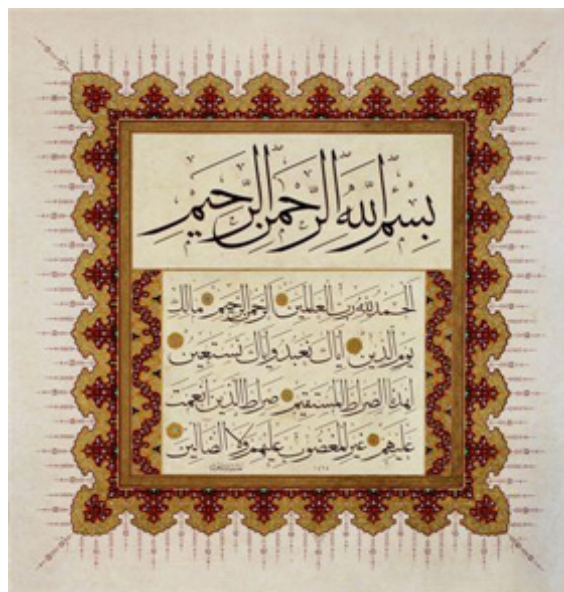 بِسْمِ اللّٰهِ الرَّحْمٰنِ الرَّحِيمِ
الحمد لله رب العالمين الرحمن الرحيم مالك
يوم الدين اياك نعبد واياك نستعين
اهدنا الصراط المستقيم صراط الذين انعمت
عليهم غير المغضوب عليهم ولا الضالين